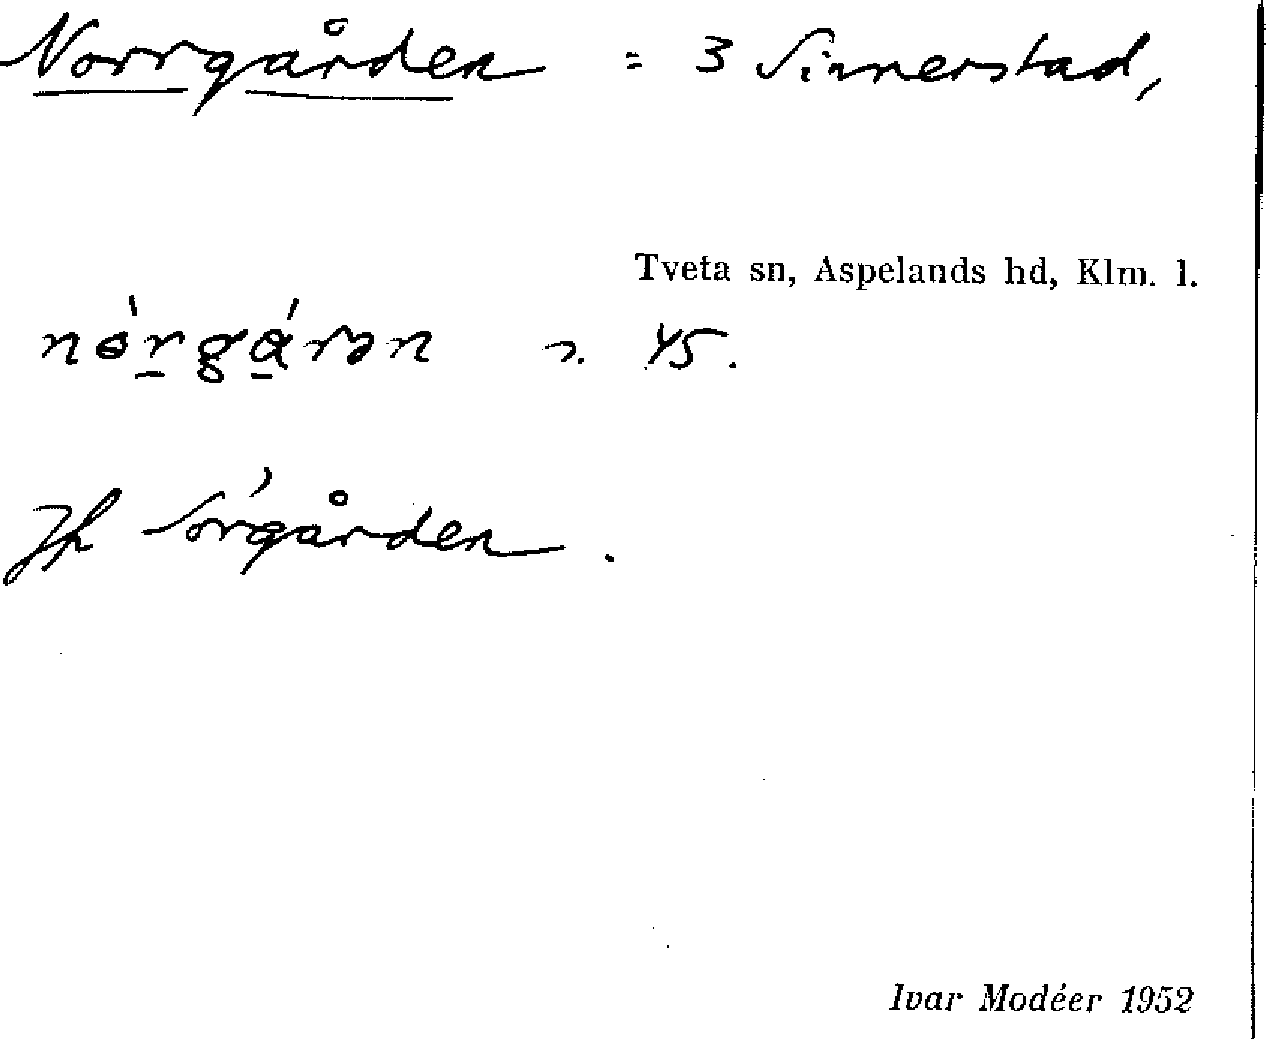 Norrgården = 3 Sinnerstad,
Tveta sn, Aspelands hd, Klm. l.
nórgárən 45.
Jfr Sörgården.
Ivar Modéer 1952